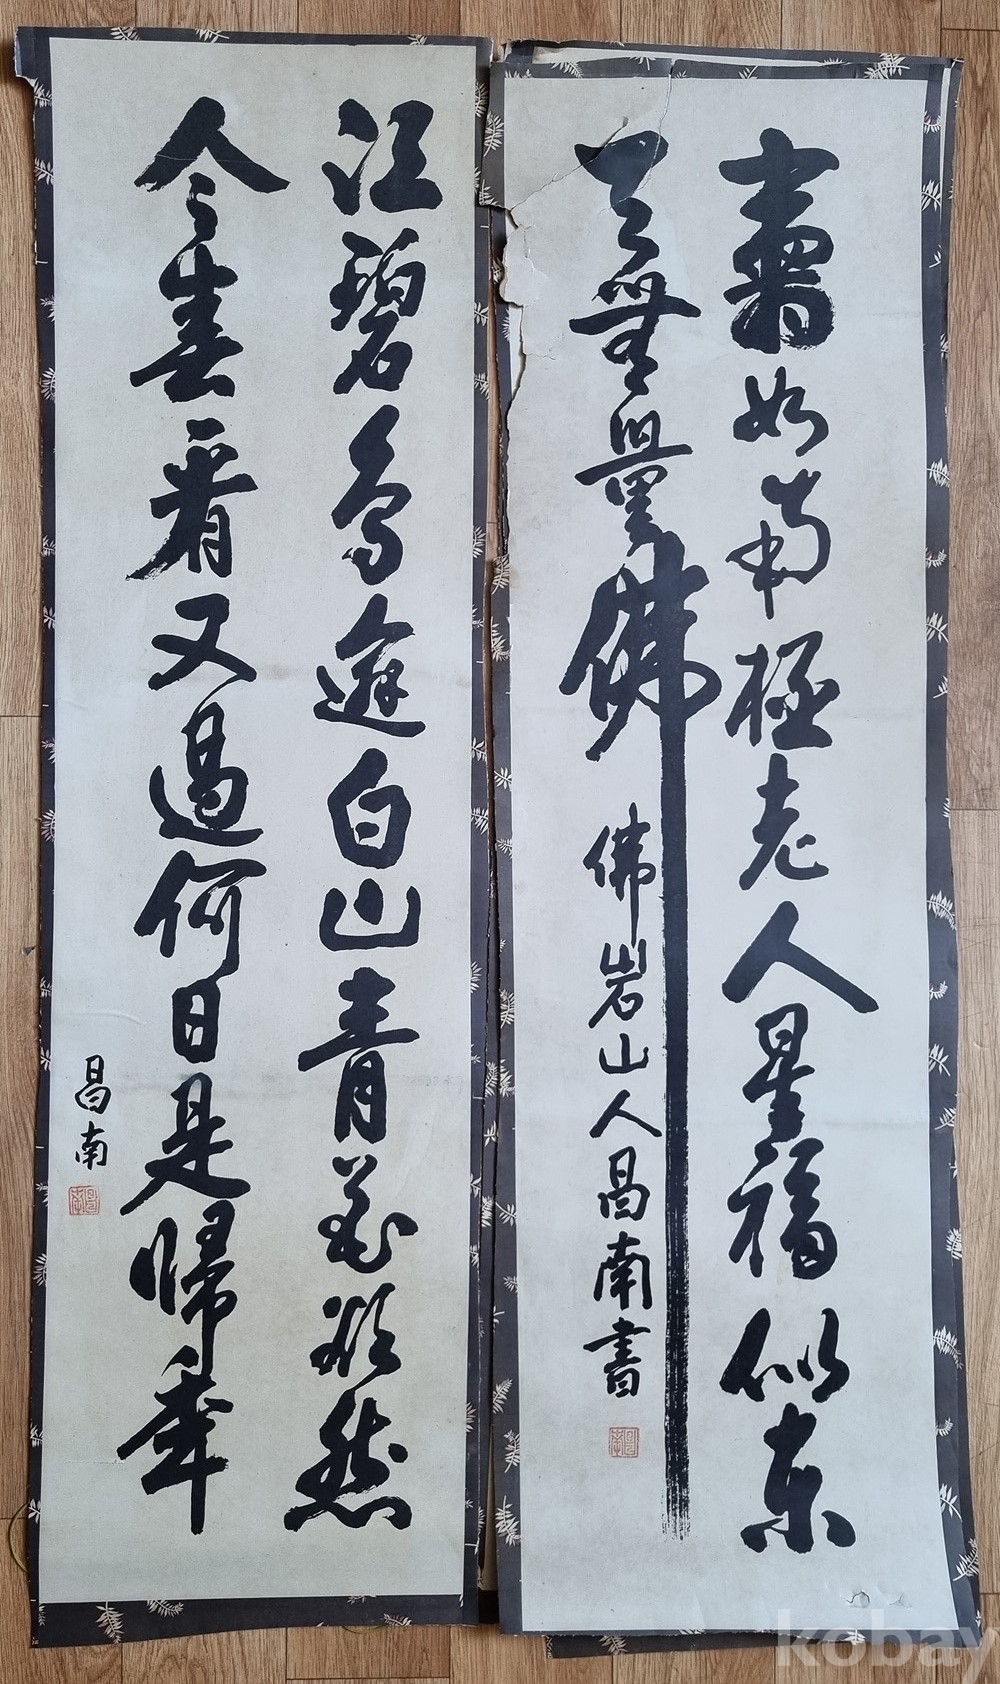 壽如南極老人星福似東
天無量佛
佛岩山人昌南書
江碧鳥逾白山青花欲然
今春看又過何日是歸年
昌南
kobay